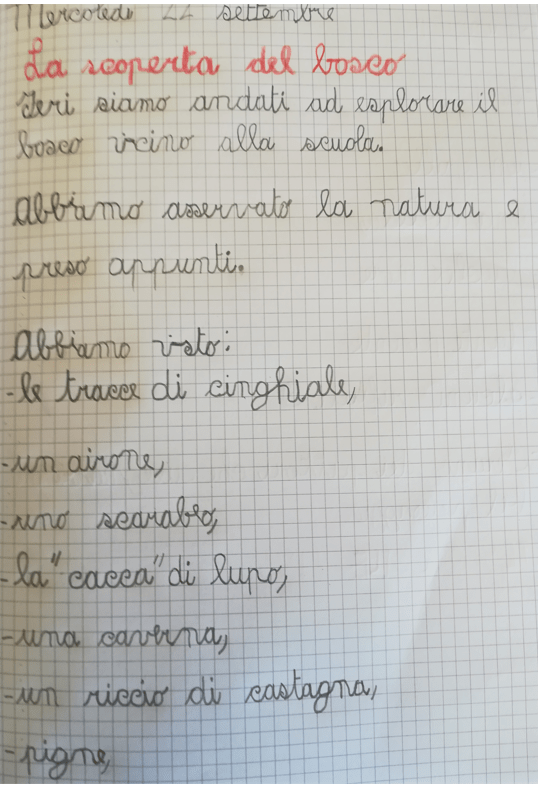 Mercoledì 22 settembre
La scoperta del bosco
Ieri siamo andati ad esplorare il
bosco vicino alla scuola.
Abbiamo osservato la natura e
preso appunti.
Abbiamo visto:
-le tracce di cinghiale,
-un airone,
-uno scarabeo,
-la "cacca" di lupo,
-una caverna,
-un riccio di castagna,
-pigne,